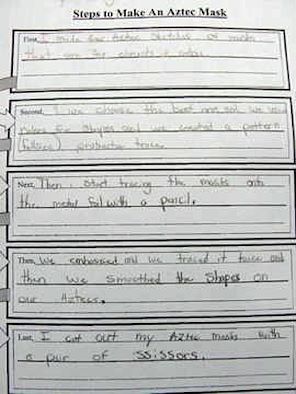 Steps to Make An Aztec Mask
First, I made four Aztec sketches of masks
that are for
Second, I we choose the best one and we used
rulers for shapes and we created a pattern
trace.
Next, Then, I start tracing the masks onto
the metal foil with a pencil.
Then, we embossed and we traced it twice and
then we smoothed the shapes on
our Aztecs.
Last, I cut out my Aztec masks with
a pair of ssissors.